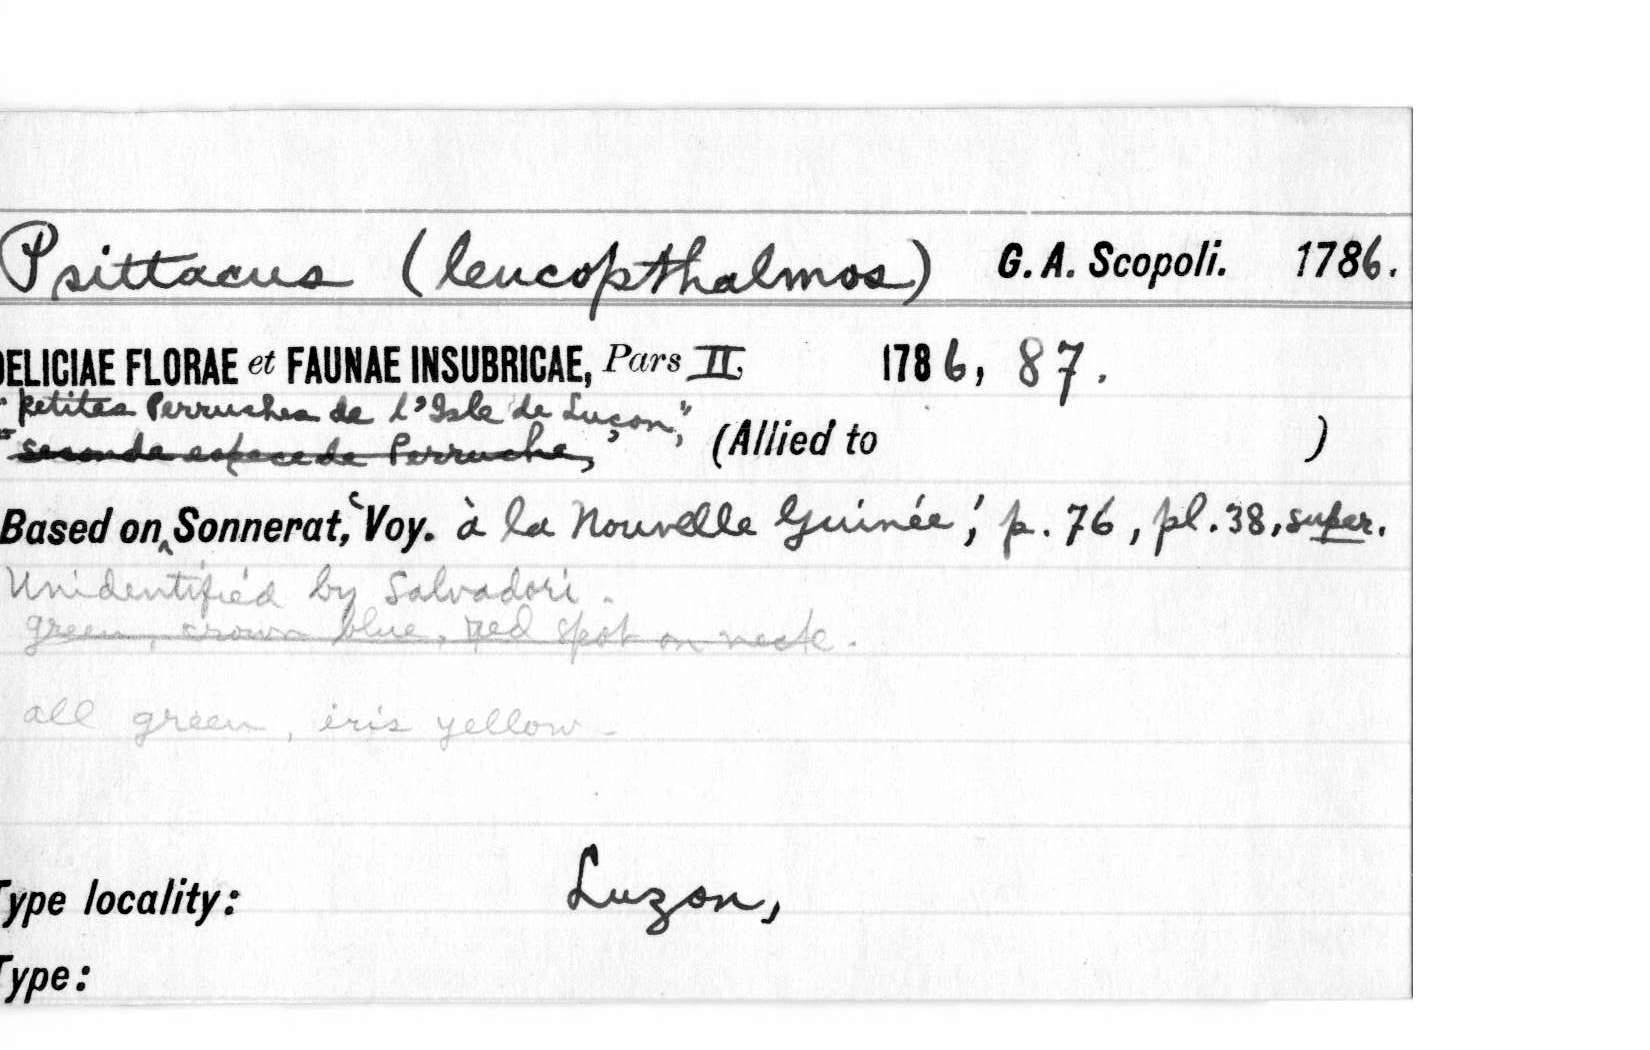 Psittacus (leucopthalmos) G. A. Scopoli. 1786.
DELICIAE FLORAE et FAUNAE INSUBRICAE, Pars II, 1786, 87.
"petites Perruches de l'Isle de Luçon,"
"seconde espece de Perruche," (Allied to )
Based on ‸ Sonnerat, 'Voy. à la Nouvelle Guinée', p. 76, pl. 38, super.
Unidentified by Salvadori.
green, crown blue, red spot on neck.
all green, iris yellow.
Type locality: Luzon,
Type: